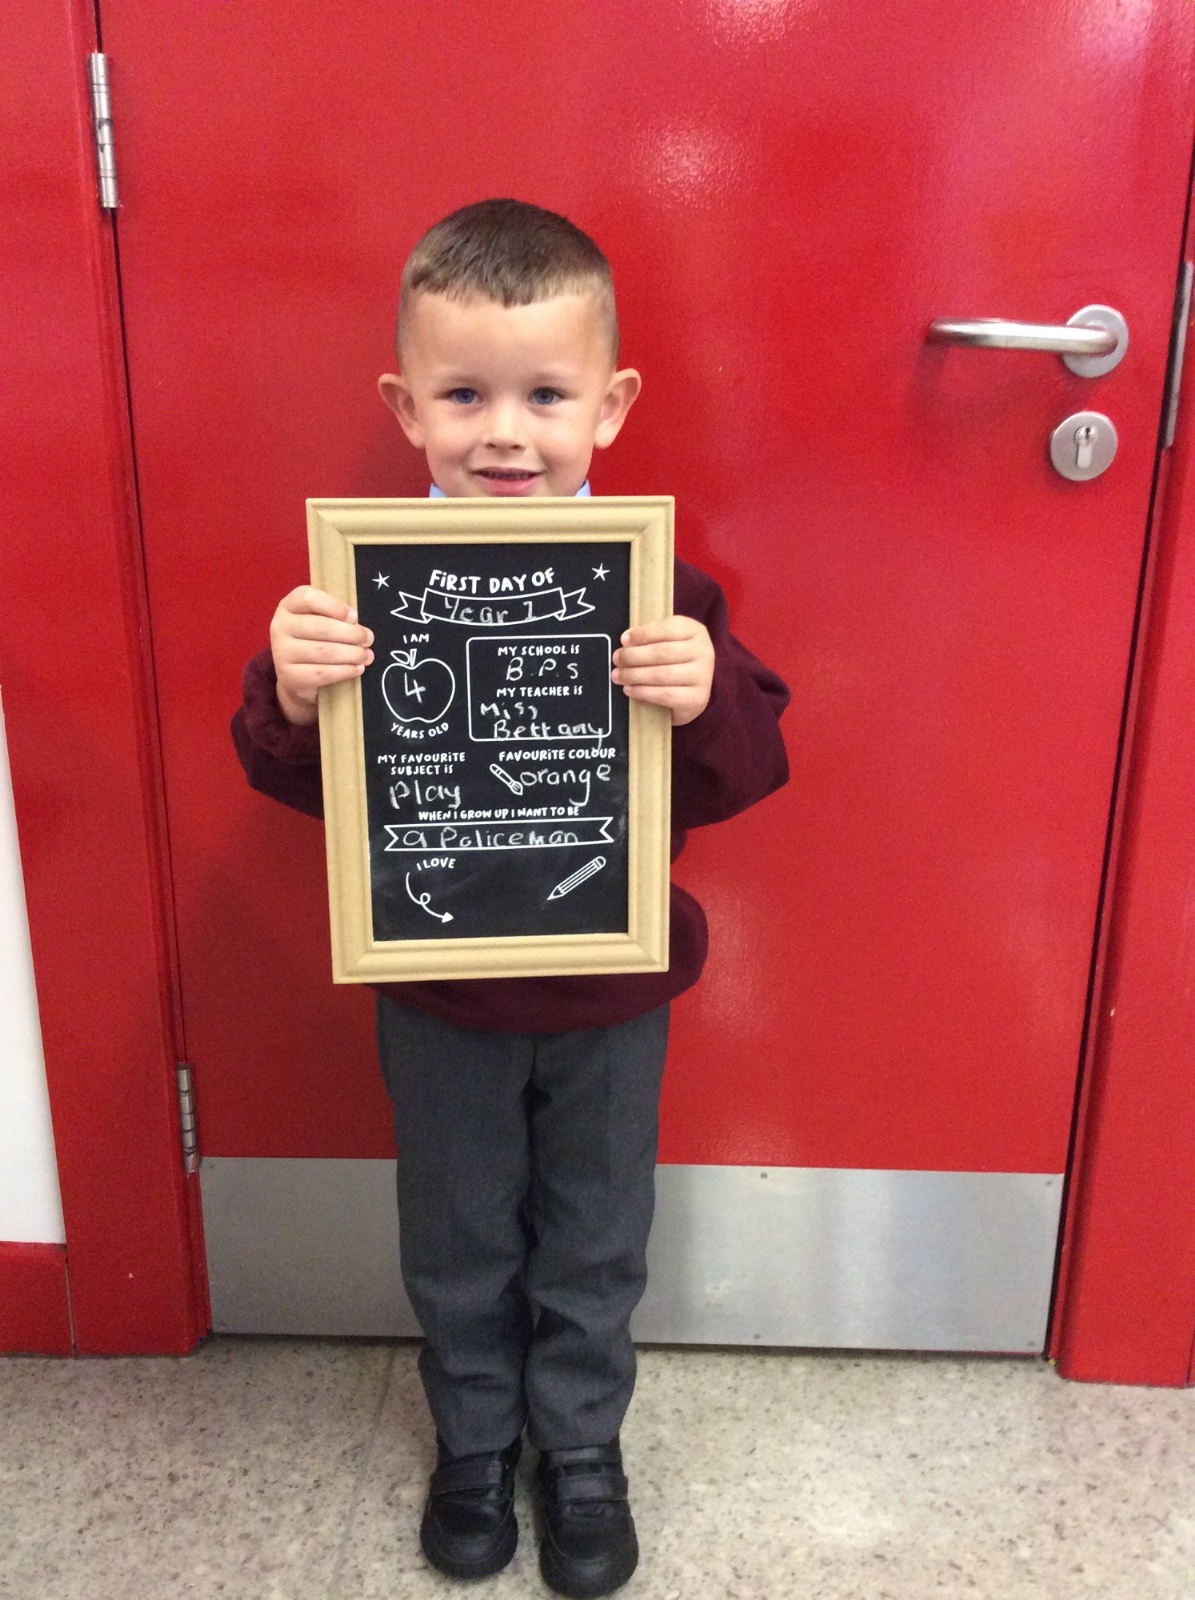 FIRST DAY OF
Year 1
I AM
4
YEARS OLD
MY SCHOOL IS
B.P.S
MY TEACHER IS
Miss
Bettany
MY FAVOURITE
SUBJECT IS
Play
FAVOURITE COLOUR
orange
WHEN I GROW UP I WANT TO BE
a Policeman
I LOVE